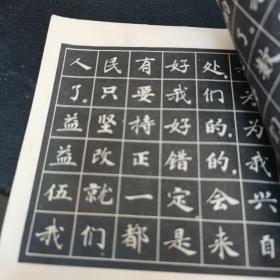 人民有好处,
了。只要我们为
益坚持好的,为
益改正错的,
伍就一定会兴
我们都是来自